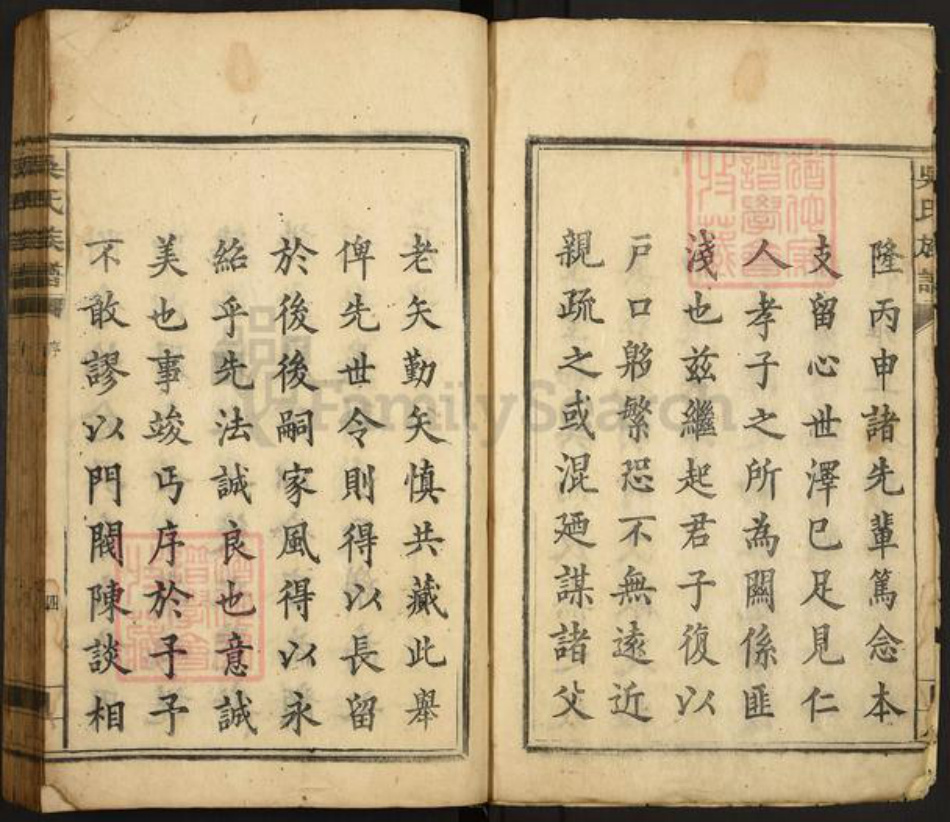 吳氏族譜
隆丙申諸先輩篤念本
支留心世澤已足見仁
人孝子之所為關係匪
淺也茲繼起君子復以
戶口夥繁恐不無遠近
親疏之或混廼謀諸父
老矣勤矣慎共藏此舉
俾先世令則得以長留
於後後嗣家風得以永
紹乎先法誠良也意誠
美也事竣丐序於予予
不敢謬以門閥陳談相
吳氏族譜
序
四
譜學會
收藏
FamilySearch